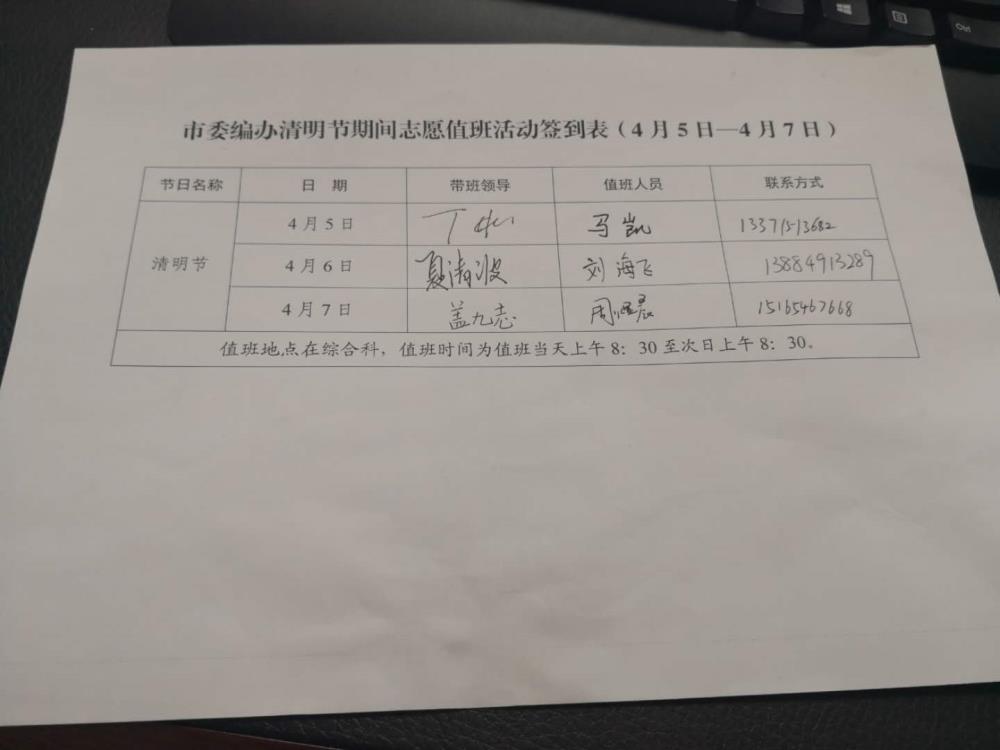 市委编办清明节期间志愿值班活动签到表（4月5日—4月7日）
节日名称 日 期 带班领导 值班人员 联系方式
4月5日 丁 马凯 13371513682
清明节 4月6日 夏清波 刘海飞 13884913289
4月7日 盖九志 周 晨 15165467668
值班地点在综合科，值班时间为值班当天上午8：30至次日上午8：30。
Ctrl